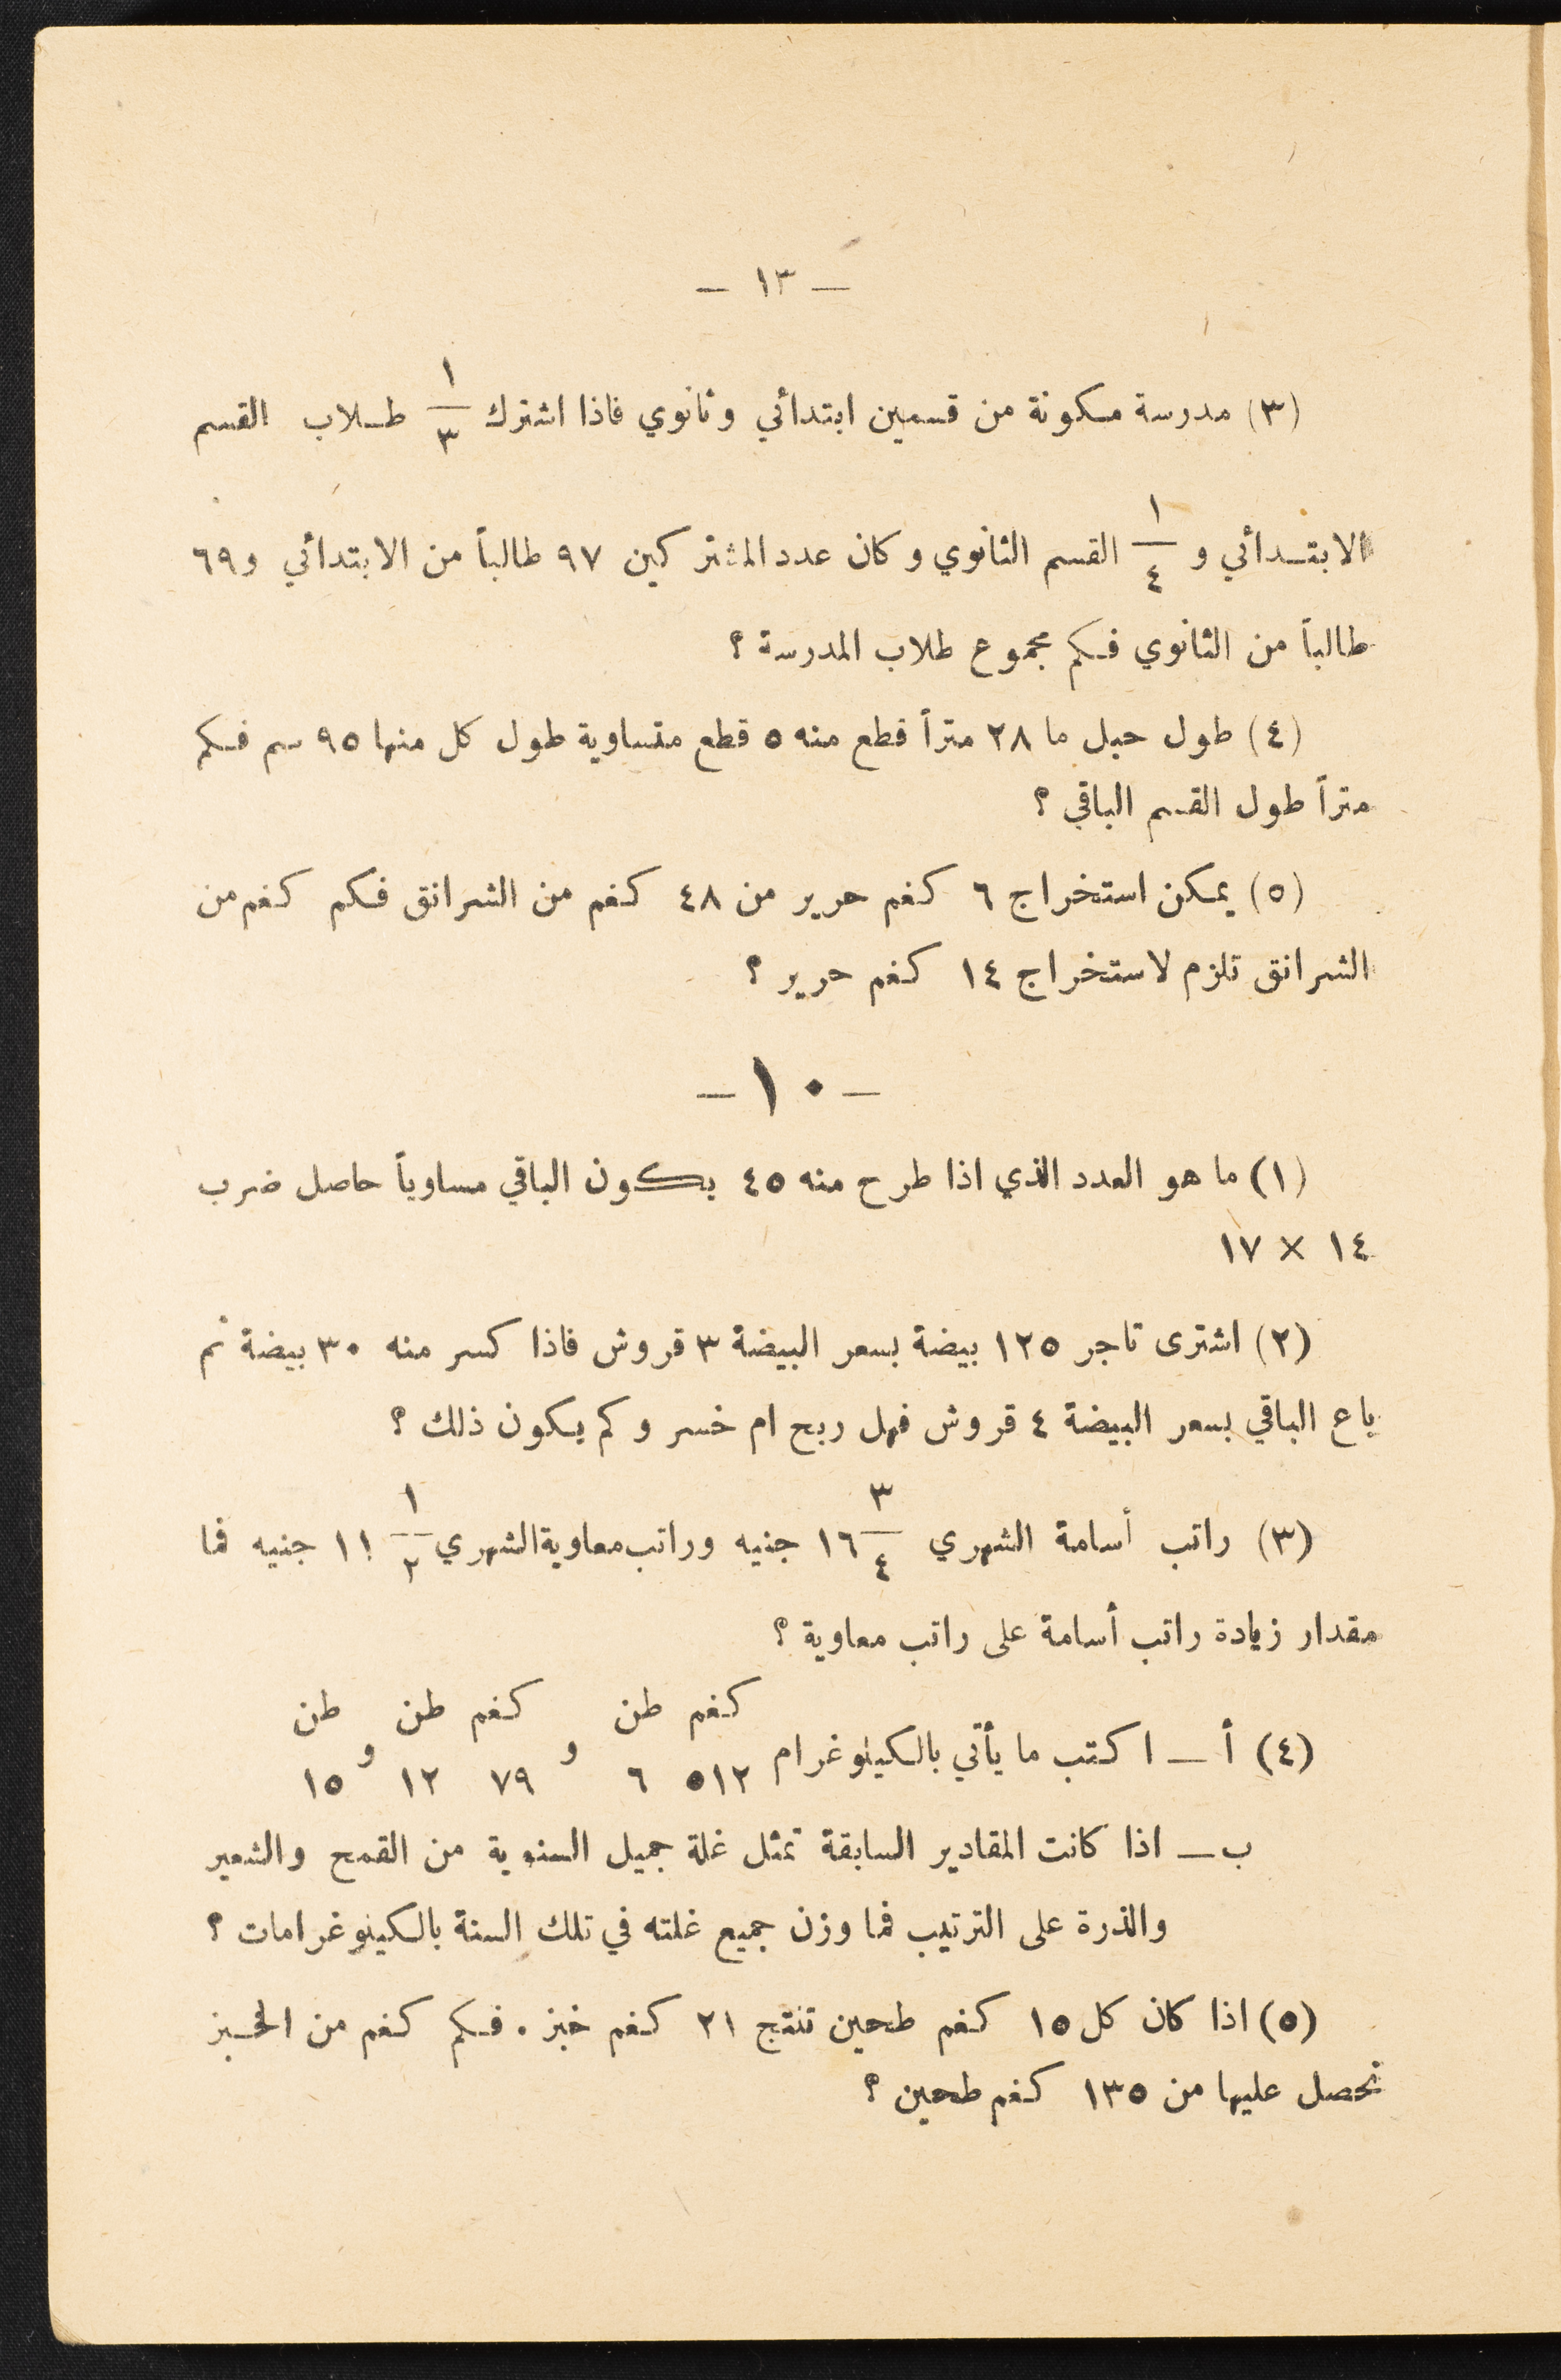 — ١٣ —
(٣) مدرسة مكونة من قسمين ابتدائي وثانوي فاذا اشترك ١/٣ طلاب القسم
الابتدائي و ١/٤ القسم الثانوي وكان عدد المشتركين ٩٧ طالباً من الابتدائي و ٦٩
طالباً من الثانوي فكم مجموع طلاب المدرسة ؟
(٤) طول حبل ما ٢٨ متراً قطع منه ٥ قطع متساوية طول كل منها ٩٥ سم فكم
متراً طول القسم الباقي ؟
(٥) يمكن استخراج ٦ كغم حرير من ٤٨ كغم من الشرانق فكم كغم من
الشرانق تلزم لاستخراج ١٤ كغم حرير ؟
— ١٠ —
(١) ما هو العدد الذي اذا طرح منه ٤٥ يكون الباقي مساوياً حاصل ضرب
١٤ × ١٧
(٢) اشترى تاجر ١٢٥ بيضة بسعر البيضة ٣ قروش فاذا كسر منه ٣٠ بيضة ثم
باع الباقي بسعر البيضة ٤ قروش فهل ربح ام خسر وكم يكون ذلك ؟
(٣) راتب أسامة الشهري ١٦ ٣/٤ جنيه وراتب معاوية الشهري ١١ ١/٢ جنيه فما
مقدار زيادة راتب أسامة على راتب معاوية ؟
كغم طن كغم طن طن
(٤) أ — اكتب ما يأتي بالكيلوغرام ٥١٢ ٦ و ٧٩ ١٢ و ١٥
ب — اذا كانت المقادير السابقة تمثل غلة جميل السنوية من القمح والشعير
والذرة على الترتيب فما وزن جميع غلته في تلك السنة بالكيلوغرامات ؟
(٥) اذا كان كل ١٥ كغم طحين تنتج ٢١ كغم خبز . فكم كغم من الخبز
نحصل عليها من ١٣٥ كغم طحين ؟